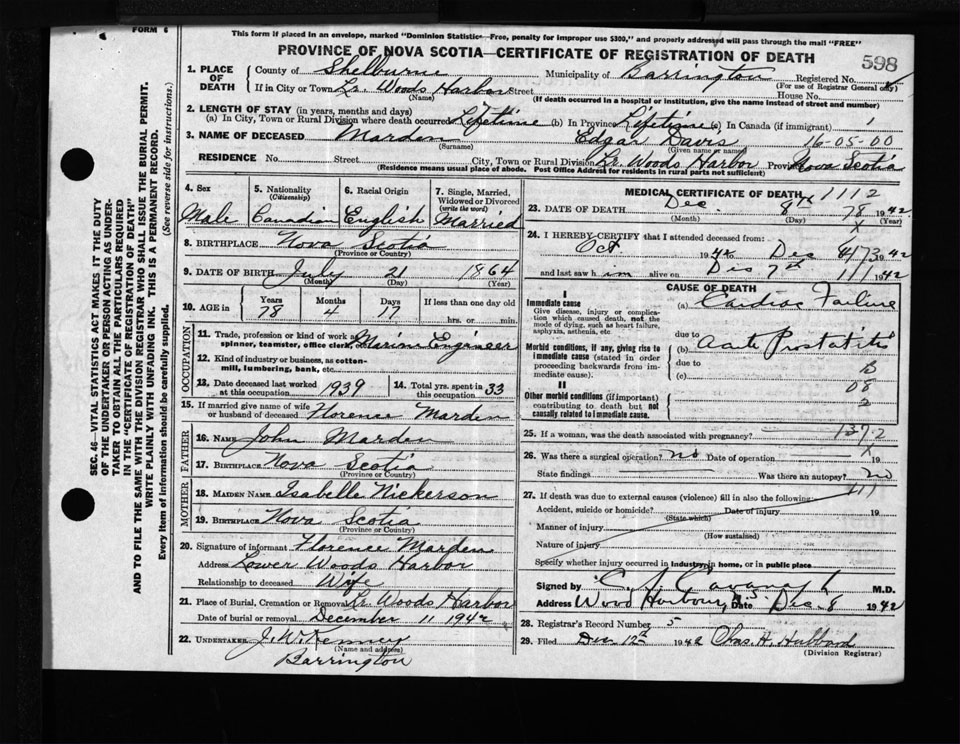 FORM 6
This form if placed in an envelope, marked "Dominion Statistics—Free, penalty for improper use $300," and properly addressed will pass through the mail "FREE"
PROVINCE OF NOVA SCOTIA—CERTIFICATE OF REGISTRATION OF DEATH
598
1. PLACE OF DEATH
County of Shelburne Municipality of Barrington Registered No.
(For use of Registrar General only)
If in City or Town Lr. Woods Harbor Street House No.
(Name) (If death occurred in a hospital or institution, give the name instead of street and number)
2. LENGTH OF STAY (in years, months and days)
(a) In City, Town or Rural Division where death occurred Lifetime (b) In Province Lifetime (c) In Canada (if immigrant)
3. NAME OF DECEASED Marden Edgar Davis 16-05-00
(Surname) (Given name or names)
RESIDENCE No. Street City, Town or Rural Division Lr. Woods Harbor Province Nova Scotia
(Residence means usual place of abode. Post Office Address for residents in rural parts not sufficient)
4. Sex Male
5. Nationality (Citizenship) Canadian
6. Racial Origin English
7. Single, Married, Widowed or Divorced (write the word) Married
8. BIRTHPLACE Nova Scotia
(Province or Country)
9. DATE OF BIRTH July 21 1864
(Month) (Day) (Year)
10. AGE in Years Months Days If less than one day old
78 4 17 hrs. or min.
OCCUPATION
11. Trade, profession or kind of work as spinner, teamster, office clerk, Marine Engineer
12. Kind of industry or business, as cotton-mill, lumbering, bank, etc.
13. Date deceased last worked at this occupation 1939
14. Total yrs. spent in this occupation 33
15. If married give name of wife or husband of deceased Florence Marden
FATHER
16. NAME John Marden
17. BIRTHPLACE Nova Scotia
(Province or Country)
MOTHER
18. MAIDEN NAME Isabelle Nickerson
19. BIRTHPLACE Nova Scotia
(Province or Country)
20. Signature of informant Florence Marden
Address Lower Woods Harbor
Relationship to deceased Wife
21. Place of Burial, Cremation or Removal Lr. Woods Harbor
Date of burial or removal December 11, 1942
22. UNDERTAKER J. W. Kenney
(Name and address)
Barrington
MEDICAL CERTIFICATE OF DEATH 1112
23. DATE OF DEATH Dec. 8th 78 1942
(Month) (Day) (Year)
24. I HEREBY CERTIFY that I attended deceased from:
Oct 1942 to Dec 8 1942
and last saw him alive on Dec 7th 1942
CAUSE OF DEATH
I
Immediate cause
Give disease, injury or complication which caused death, not the mode of dying, such as heart failure, asphyxia, asthenia, etc.
(a) Cardiac Failure
due to
Morbid conditions, if any, giving rise to immediate cause (stated in order proceeding backwards from immediate cause).
(b) Acute Prostatitis
due to
(c)
II
Other morbid conditions (if important) contributing to death but not causally related to immediate cause.
25. If a woman, was the death associated with pregnancy? 137-2
26. Was there a surgical operation? no Date of operation 19
State findings Was there an autopsy? no
27. If death was due to external causes (violence) fill in also the following:
Accident, suicide or homicide? Date of injury 19
(State which)
Manner of injury
(How sustained)
Nature of injury
Specify whether injury occurred in industry, in home, or in public place
Signed by Cavanagh M.D.
Address Wood Harbour, N.S. Date Dec. 8 1942
28. Registrar's Record Number 5
29. Filed Dec 12th 1942 Chas. H. Hubbard
(Division Registrar)
SEC. 46—VITAL STATISTICS ACT MAKES IT THE DUTY
OF THE UNDERTAKER OR PERSON ACTING AS UNDER-
TAKER TO OBTAIN ALL THE PARTICULARS REQUIRED
IN THE "CERTIFICATE OF REGISTRATION OF DEATH"
AND TO FILE THE SAME WITH THE DIVISION REGISTRAR WHO SHALL ISSUE THE BURIAL PERMIT.
WRITE PLAINLY WITH UNFADING INK. THIS IS A PERMANENT RECORD.
Every item of information should be carefully supplied. (See reverse side for instructions.)